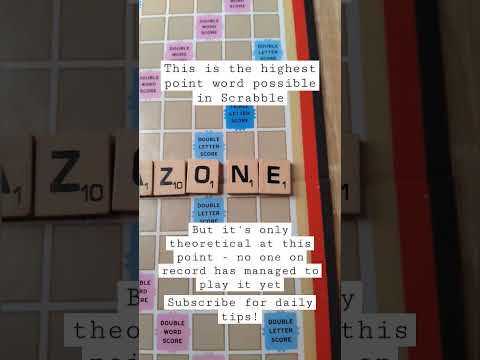 SCORE
DOUBLE
WORD
SCORE
DOUBLE
WORD
DOUBLE
LETTER
This is the highest
point word possible
in Scrabble
DOUBLE
WORD
SCORE
LETTER
SCORE
DOUBLE
LETTER
SCORE
Z10 1 Z10 O1 N1 E1 E1
DOUBLE
LETTER
But it's only
theoretical at this
point - no one on
record has managed to
play it yet
Subscribe for daily
tips!
WORD
SCORE
DOUBLE
WORD
SCORE
DOUBLE
LETTER
SCORE